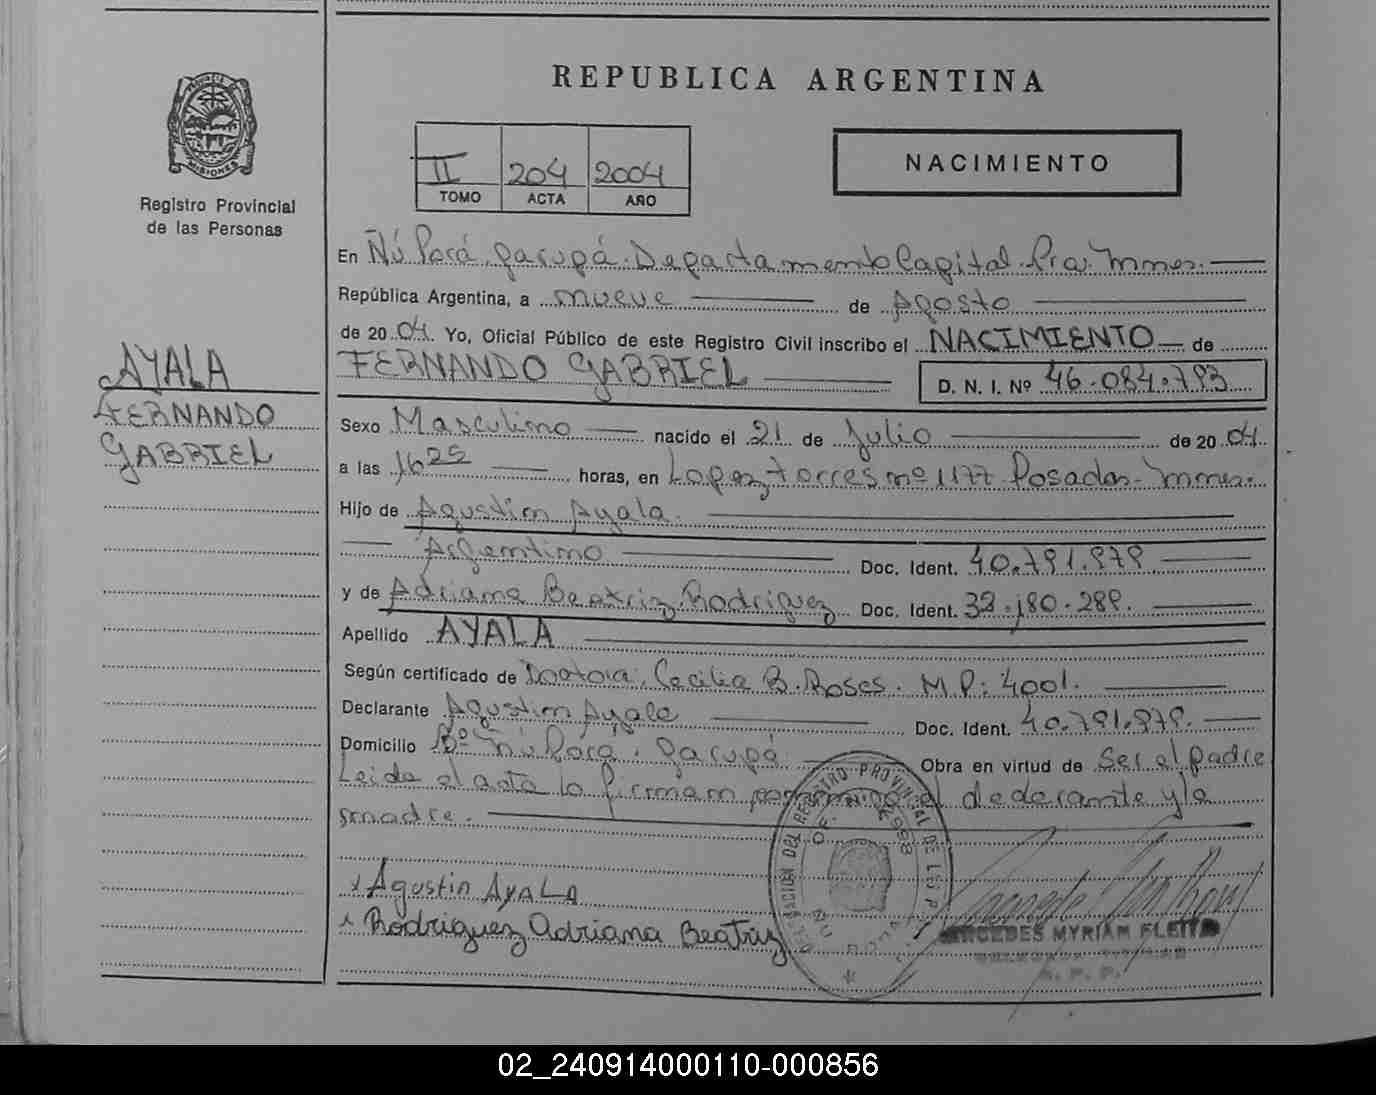 REPUBLICA ARGENTINA
PROVINCIA DE MISIONES
Registro Provincial
de las Personas
II 204 2004
TOMO ACTA AÑO
NACIMIENTO
En Ñú Porá, Garupá. Departamento Capital. Pcia. Mnes.
República Argentina, a nueve de Agosto
de 20 04. Yo, Oficial Público de este Registro Civil inscribo el NACIMIENTO de
FERNANDO GABRIEL D. N. I. Nº 46.084.793
AYALA
FERNANDO
GABRIEL
Sexo Masculino nacido el 21 de Julio de 20 04.
a las 16 25 horas, en Lopez torres nº 1177 Posadas- Mnes.
Hijo de Agustin Ayala.
Argentino Doc. Ident. 40.791.979
y de Adriana Beatriz Rodriguez Doc. Ident.
Apellido AYALA
Según certificado de Doctora, Cecilia B. Roses. M.P: 4001.
Declarante Agustin Ayala Doc. Ident. 40.791.979.
Domicilio Bº Ñú Porá. Garupá Obra en virtud de Ser el padre
Leida el acta la firman el declarante y la
madre.
x Agustin AyALA
x Rodriguez Adriana Beatriz
MERCEDES MYRIAM FLEITA
02_240914000110-000856